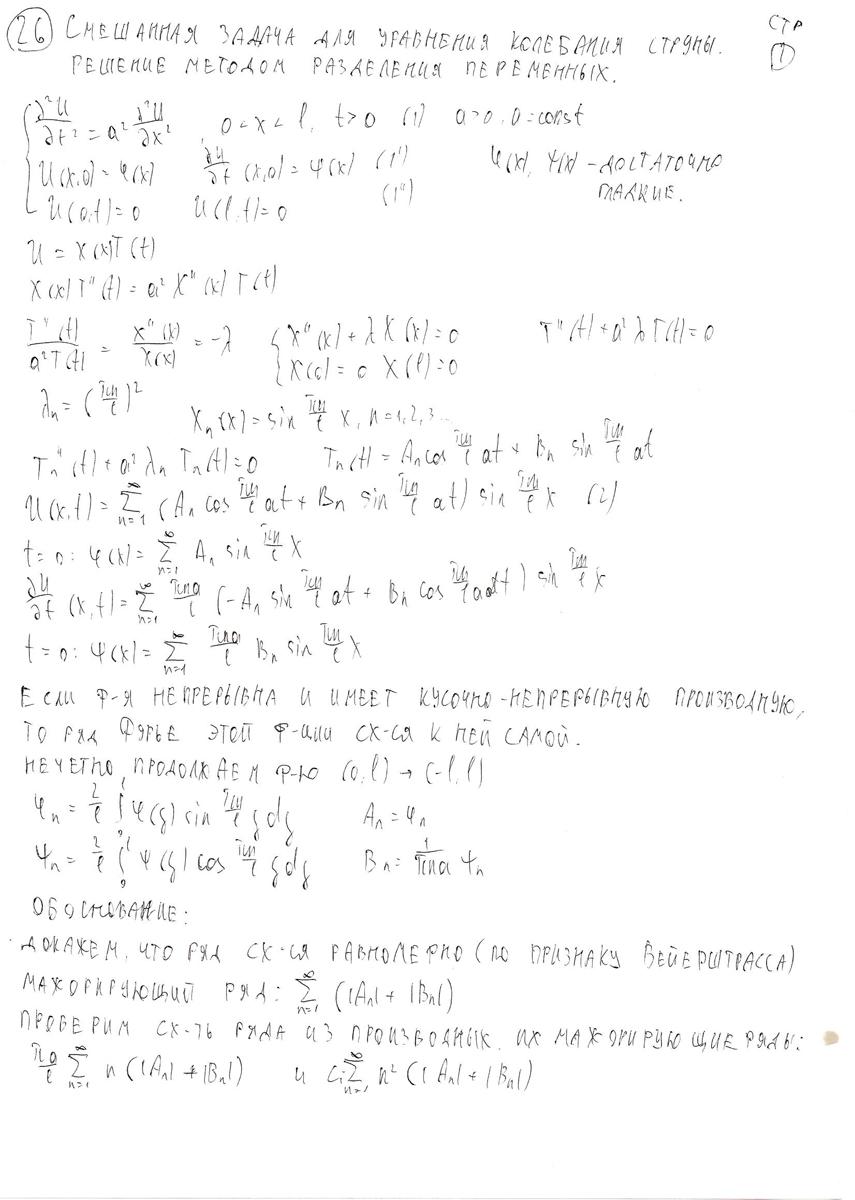 26 СМЕШАННАЯ ЗАДАЧА ДЛЯ УРАВНЕНИЯ КОЛЕБАНИЯ СТРУНЫ. СТР 1
РЕШЕНИЕ МЕТОДОМ РАЗДЕЛЕНИЯ ПЕРЕМЕННЫХ.
∂²U/∂t² = a² ∂²U/∂x², 0 < x < l, t > 0 (1) a > 0, a = const
U(x,0) = φ(x) ∂U/∂t (x,0) = ψ(x) (1') φ(x), ψ(x) – ДОСТАТОЧНО
U(0,t) = 0 U(l,t) = 0 (1'') ГЛАДКИЕ.
U = X(x)T(t)
X(x)T''(t) = a² X''(x) T(t)
T''(t)/a²T(t) = X''(x)/X(x) = -λ { X''(x) + λX(x) = 0 T''(t) + a²λT(t) = 0
X(0) = 0 X(l) = 0
λn = (πn/l)² Xn(x) = sin πn/l x, n = 1,2,3...
Tn''(t) + a²λn Tn(t) = 0 Tn(t) = An cos πn/l at + Bn sin πn/l at
U(x,t) = ∑n=1^∞ (An cos πn/l at + Bn sin πn/l at) sin πn/l x (2)
t = 0: φ(x) = ∑n=1^∞ An sin πn/l x
∂U/∂t (x,t) = ∑n=1^∞ πna/l (-An sin πn/l at + Bn cos πn/l at) sin πn/l x
t = 0: ψ(x) = ∑n=1^∞ πna/l Bn sin πn/l x
ЕСЛИ Ф-Я НЕПРЕРЫВНА И ИМЕЕТ КУСОЧНО-НЕПРЕРЫВНУЮ ПРОИЗВОДНУЮ,
ТО РЯД ФУРЬЕ ЭТОЙ Ф-ЦИИ СХ-СЯ К НЕЙ САМОЙ.
НЕЧЕТНО ПРОДОЛЖАЕМ Ф-Ю (0,l) → (-l,l)
φn = 2/l ∫0^l φ(ξ) sin πn/l ξ dξ An = φn
ψn = 2/l ∫0^l ψ(ξ) cos πn/l ξ dξ Bn = 1/πna ψn
ОБОСНОВАНИЕ:
ДОКАЖЕМ, ЧТО РЯД СХ-СЯ РАВНОМЕРНО (ПО ПРИЗНАКУ ВЕЙЕРШТРАССА)
МАЖОРИРУЮЩИЙ РЯД: ∑n=1^∞ (|An| + |Bn|)
ПРОВЕРИМ СХ-ТЬ РЯДА ИЗ ПРОИЗВОДНЫХ. ИХ МАЖОРИРУЮЩИЕ РЯДЫ:
πa/l ∑n=1^∞ n(|An| + |Bn|) и C₁∑n=1^∞ n² (|An| + |Bn|)